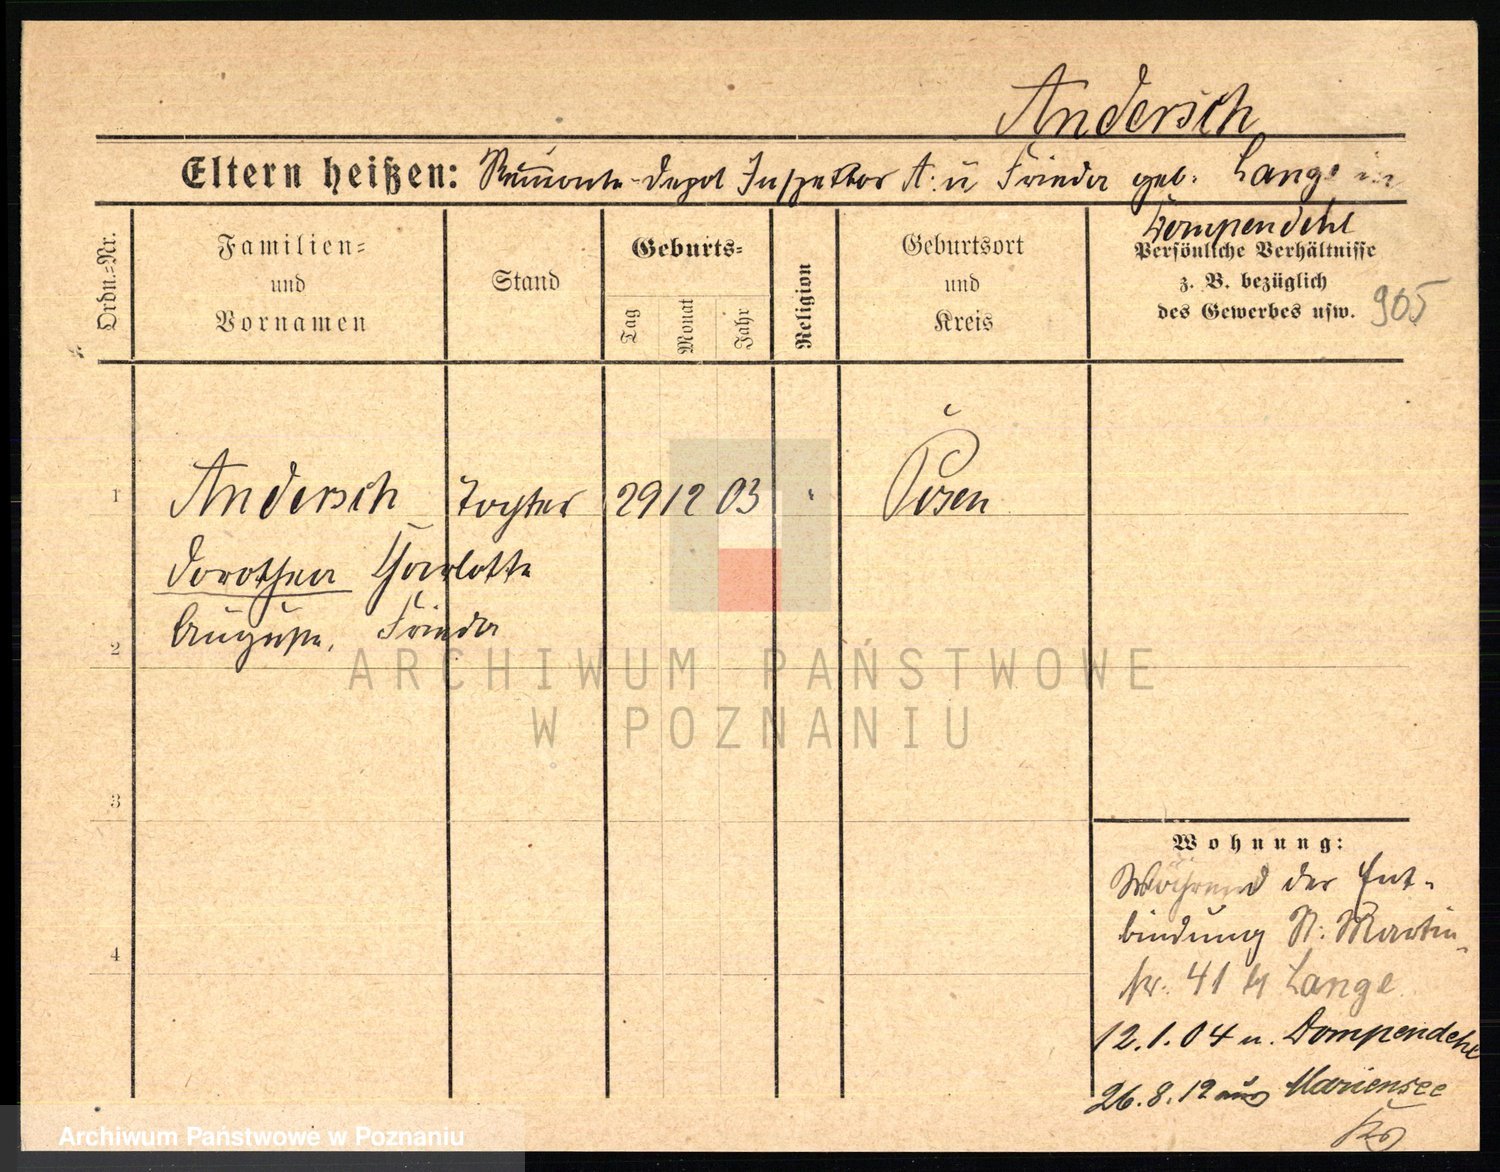 Andersch
Eltern heißen: Remonte-Depot Inspektor A. u Frieda geb. Lange in
Dompendehl
Ordn.-Nr.
Familien-
und
Vornamen
Stand
Geburts-
Tag
Monat
Jahr
Religion
Geburtsort
und
Kreis
Persönliche Verhältnisse
z. B. bezüglich
des Gewerbes usw.
905
1 Andersch Tochter 29 12 03 Posen
Dorothea Charlotte
Auguste, Frieda
2
ARCHIWUM PAŃSTWOWE
W POZNANIU
3
Wohnung:
Während der Ent-
bindung St. Martin-
4
str. 41 Lange
12.1.04 n. Dompendehl
26.8.12 aus Mariensee
Archiwum Państwowe w Poznaniu